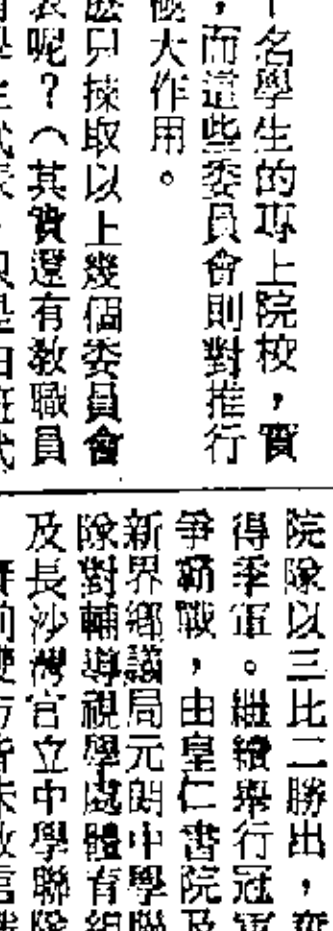 十名學生的專上院校，實
，而這些委員會則對推行
極大作用。
麽只揀取以上幾個委員會
表呢？（其實還有敎職員
院隊以三比二勝出，奪
得季軍。繼續舉行冠軍
爭霸戰，由皇仁書院及
新界鄉議局元朗中學聯
隊對輔導視學處體育組
及長沙灣官立中學聯隊